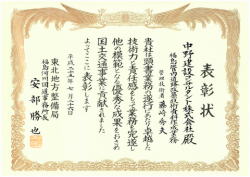 表彰状
中野建設コンサルタント株式会社殿
福島管内道路改築技術資料作成業務
管理技術者 藤崎
貴社は頭書業務の遂行にあたり卓越した
技術力と責任感をもって業務を完遂し
他の模範となる優秀な成果をおさめ
国土交通事業に貢献されました
よってここに表彰します
平成二十五年七月二十六日
東北地方整備局
福島河川国道事務所長
安部勝也